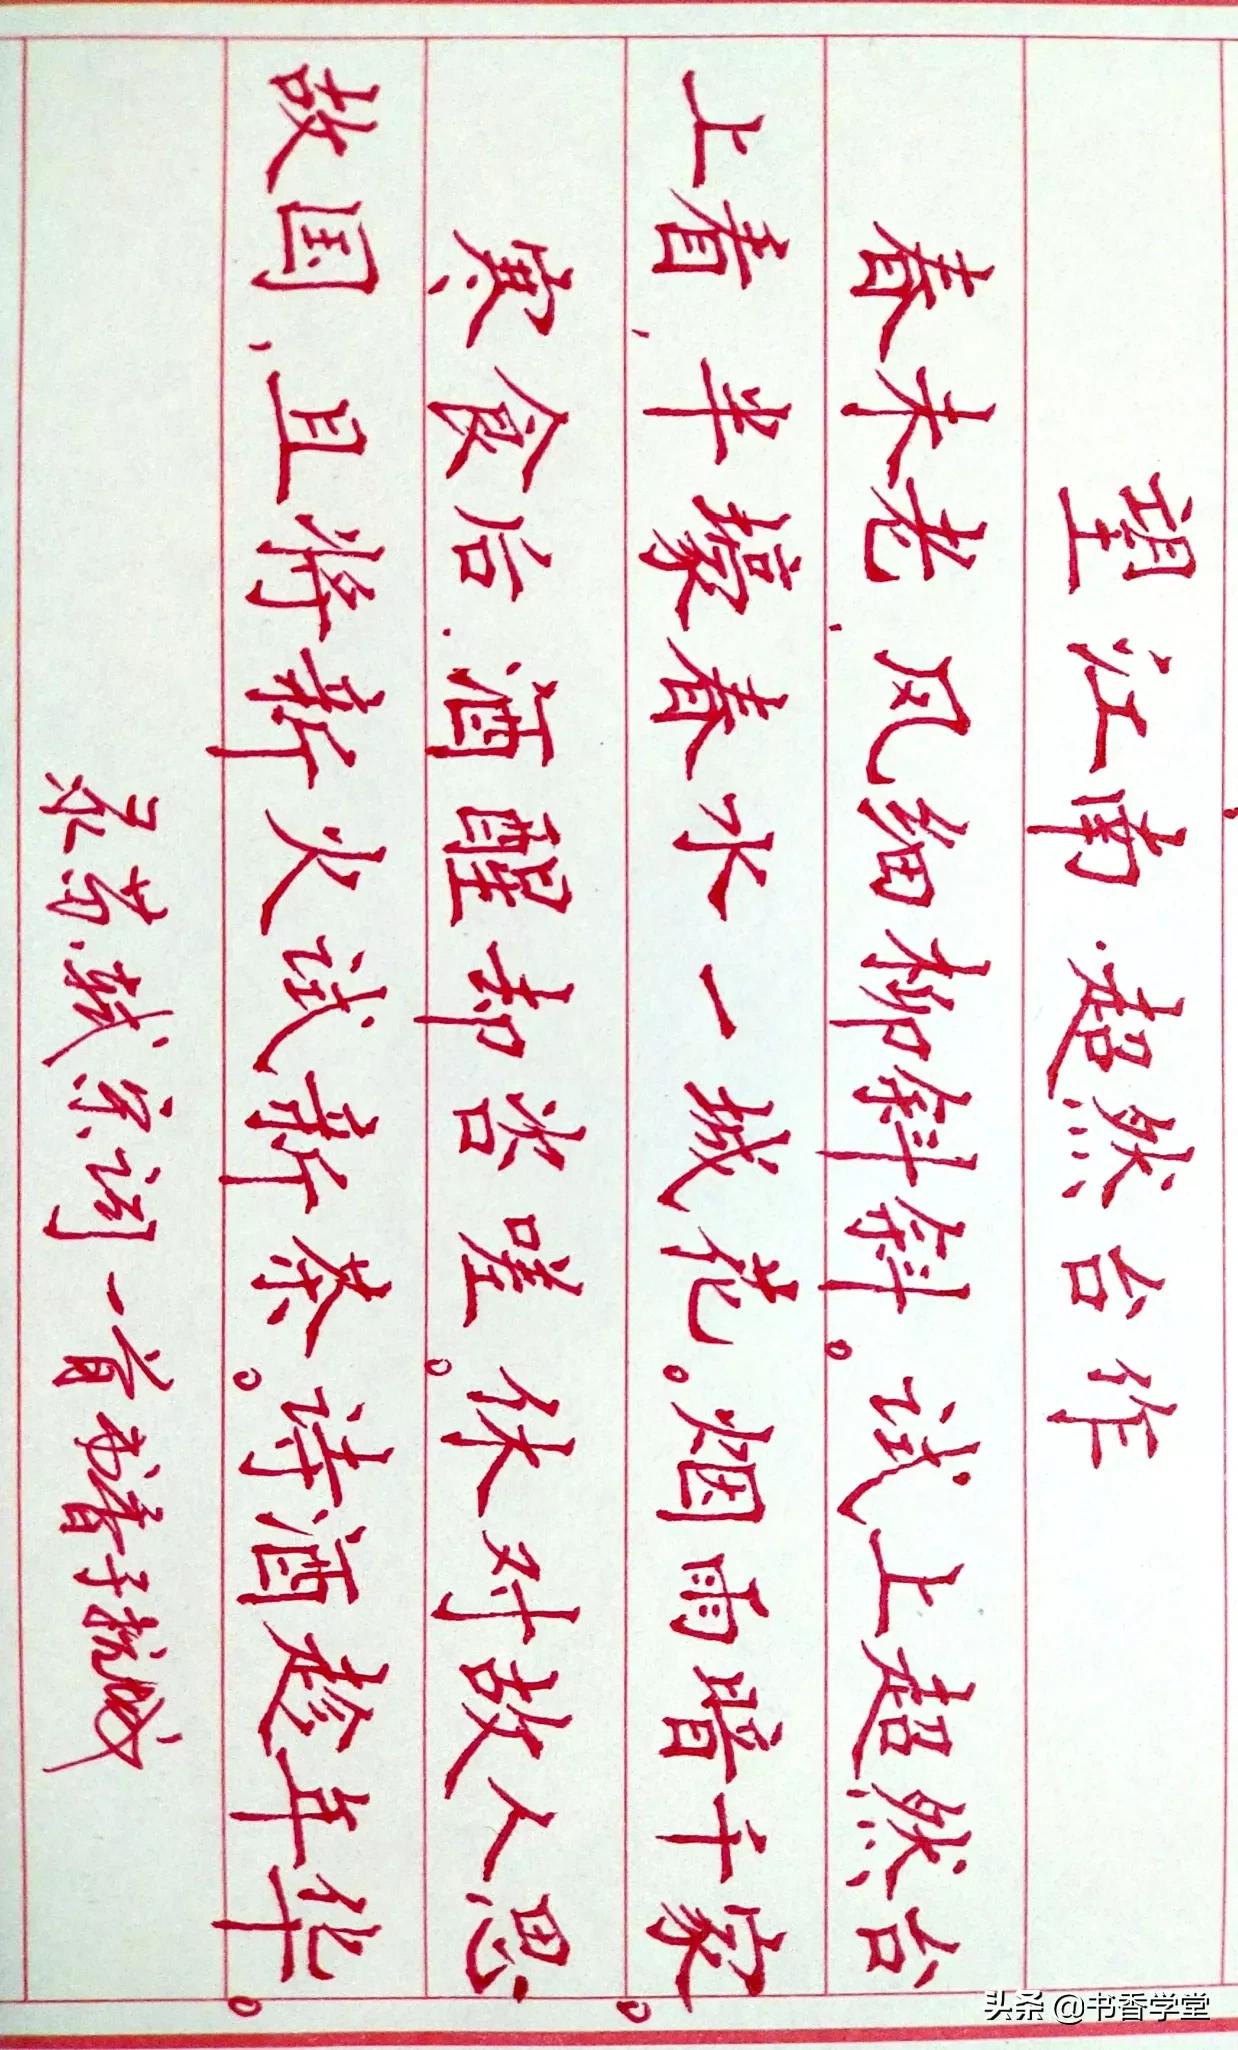 望江南·超然台作
春未老,风细柳斜斜。试上超然台
上看,半壕春水一城花。烟雨暗千家。
寒食后,酒醒却咨嗟。休对故人思
故国,且将新火试新茶。诗酒趁年华。
录苏轼宋词一首 书香子
头条 @书香学堂